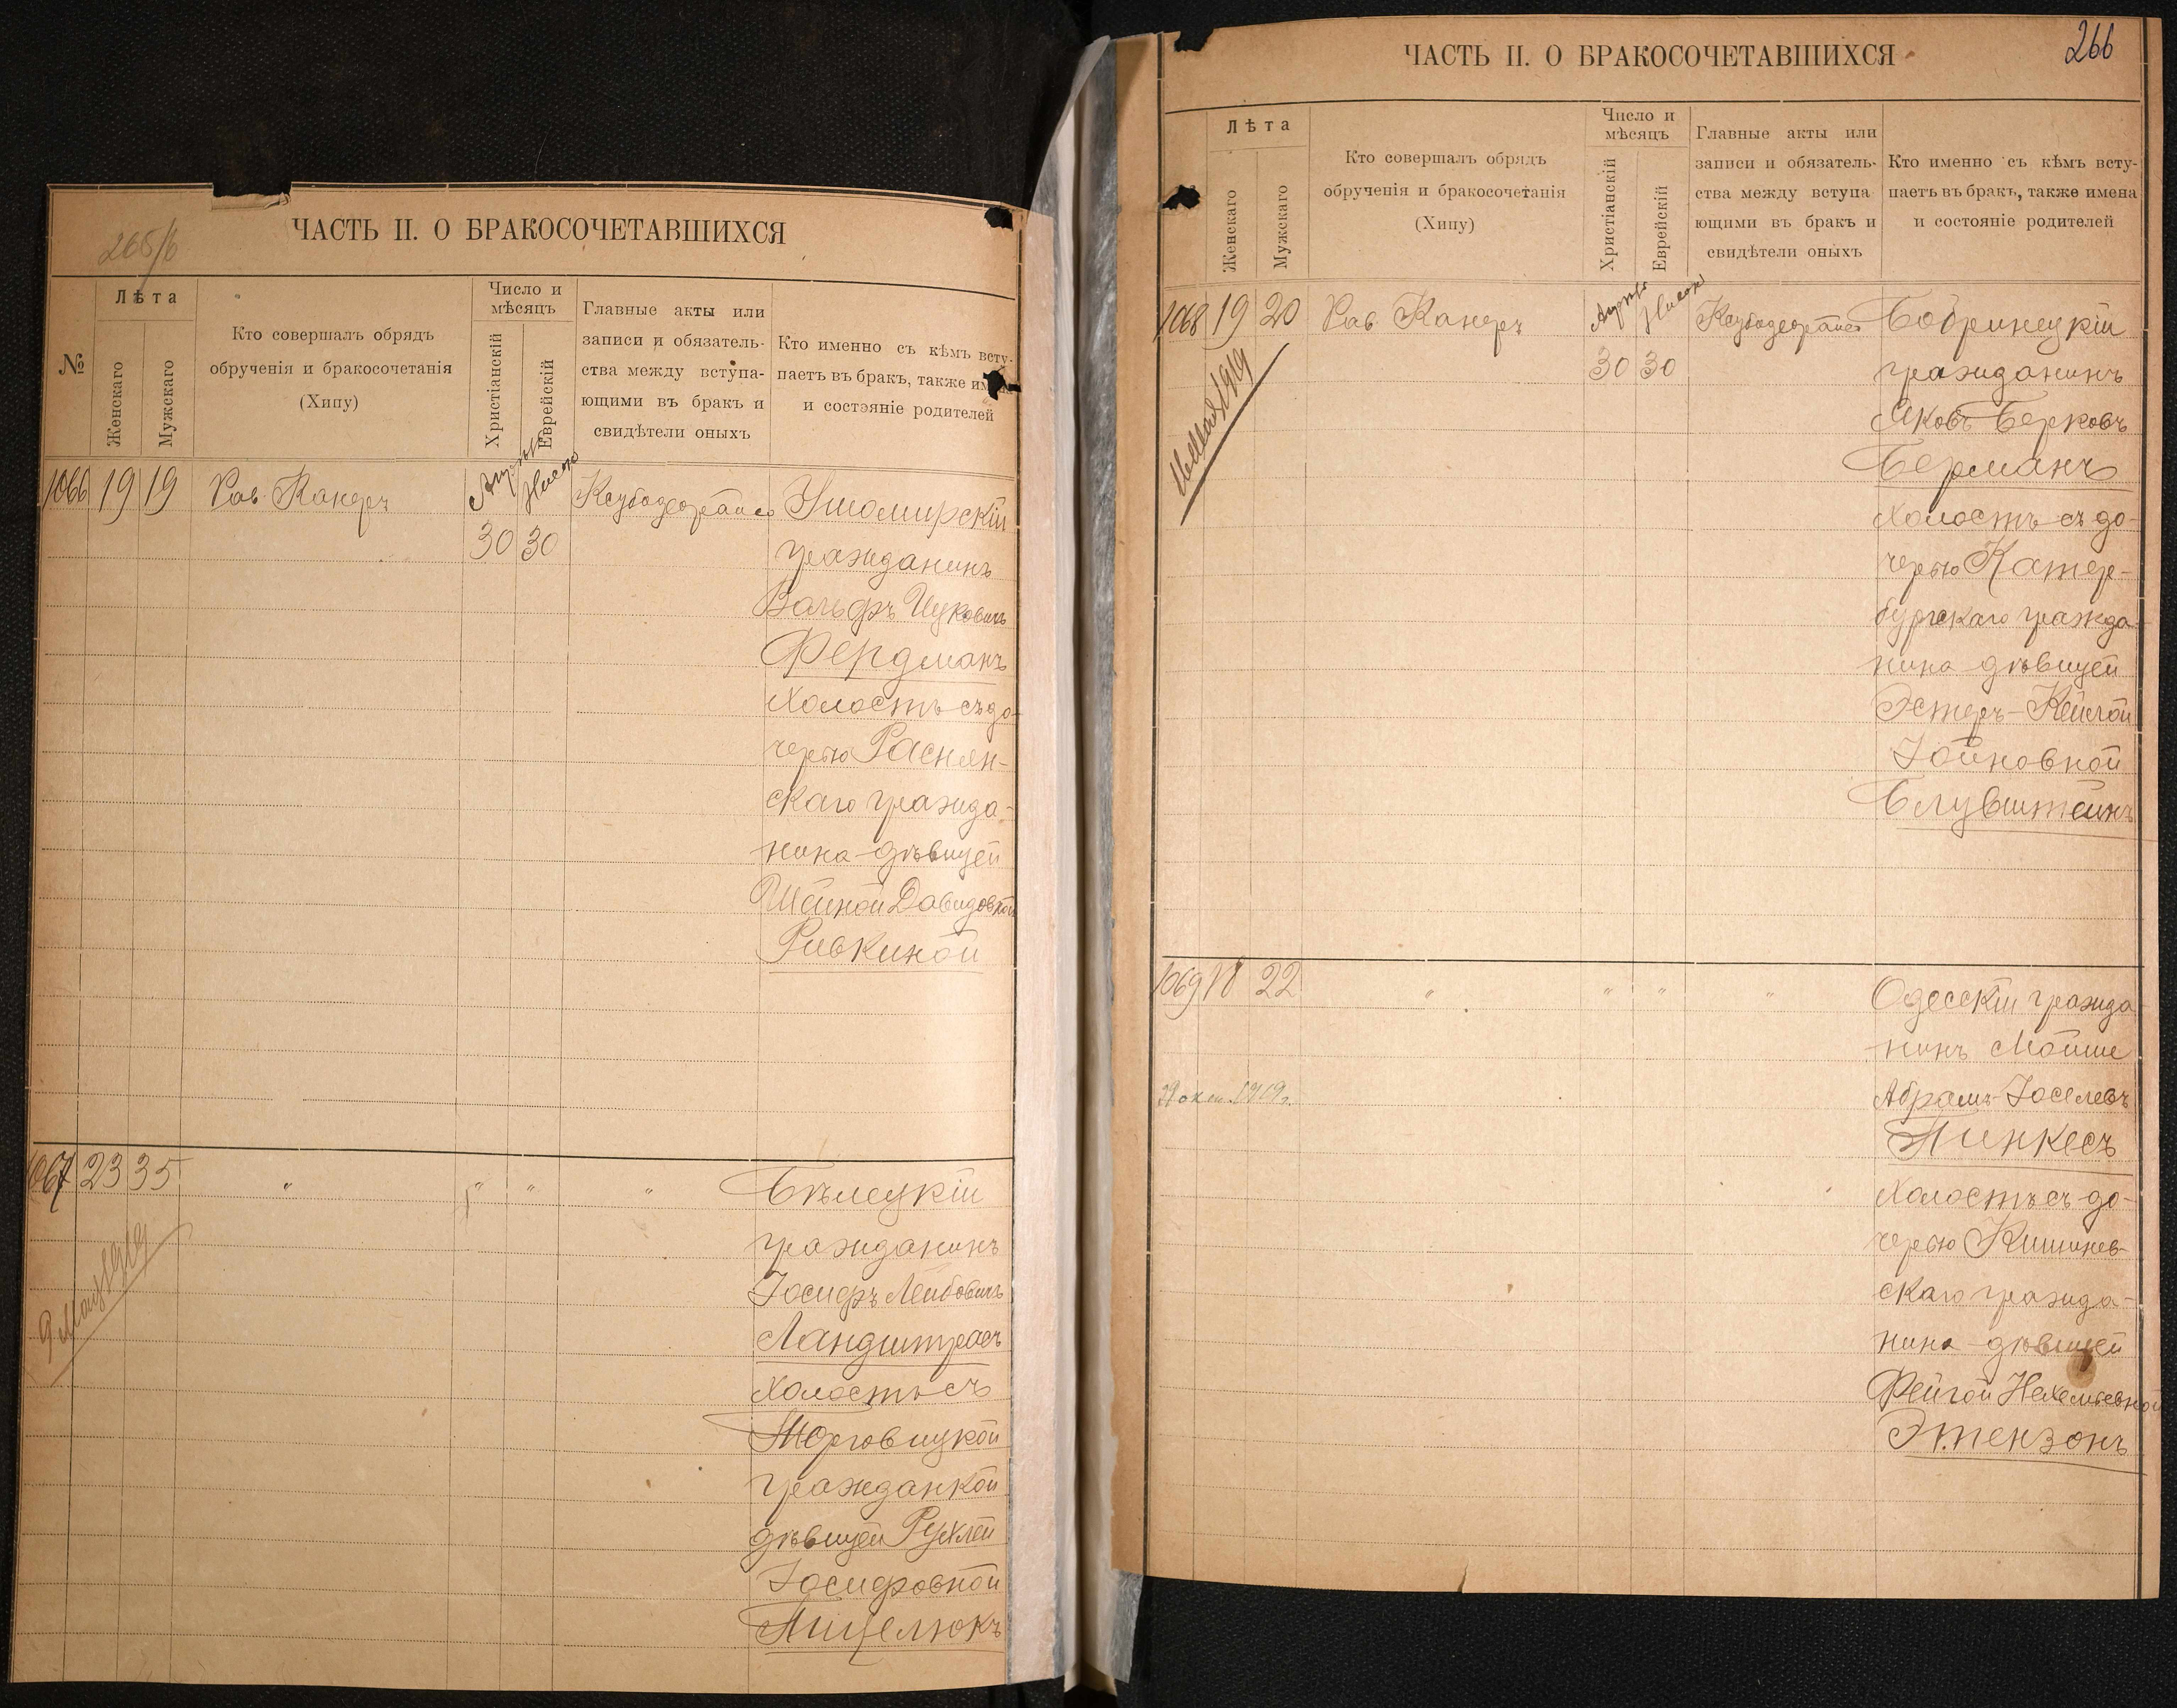 265/б
ЧАСТЬ II. О БРАКОСОЧЕТАВШИХСЯ
№
Лѣта
Женскаго
Мужскаго
Кто совершалъ обрядъ
обрученія и бракосочетанія
(Хипу)
Число и
мѣсяцъ
Христіанскій
Еврейскій
Главные акты или
записи и обязатель-
ства между вступа-
ющими въ бракъ и
свидѣтели оныхъ
Кто именно съ кѣмъ всту-
паетъ въ бракъ, также имена
и состояніе родителей
1066 19 19 Рав. Канеръ
30 30
Умомирскій
гражданинъ
Вольфъ Ицковичъ
Фердманъ
холостъ съ до-
черью Раснян-
скаго гражда-
нина дѣвицей
Шейной Давидовной
Ривкиной
1067 23 35 " " " "
Бѣлецкій
гражданинъ
Іосифъ Лейбовичъ
Ландштрасъ
холостъ съ
Торговицкой
гражданкой
дѣвицей Рухлей
Іосифовной
Пицелюкъ
9 Мая 1919
266
ЧАСТЬ II. О БРАКОСОЧЕТАВШИХСЯ
Лѣта
Женскаго
Мужскаго
Кто совершалъ обрядъ
обрученія и бракосочетанія
(Хипу)
Число и
мѣсяцъ
Христіанскій
Еврейскій
Главные акты или
записи и обязатель-
ства между вступа
ющими въ бракъ и
свидѣтели оныхъ
Кто именно съ кѣмъ всту-
паетъ въ бракъ, также имена
и состояніе родителей
1068 19 20 Рав. Канеръ
30 30
Бобринецкій
гражданинъ
Яковъ Берковъ
Берманъ
холостъ съ до-
черью Катер-
бургскаго гражда-
нина дѣвицей
Эстеръ-Кейлой
Іойновной
Блувштейнъ
1069 18 22 " " " "
Одесскій гражда-
нинъ Мойше
Абрамъ Іоселевъ
Пинкесъ
холостъ съ до-
черью Кишинев-
скаго гражда-
нина дѣвицей
Фейгой Нехемьевной
Этензонъ
29 окт. 1919г.